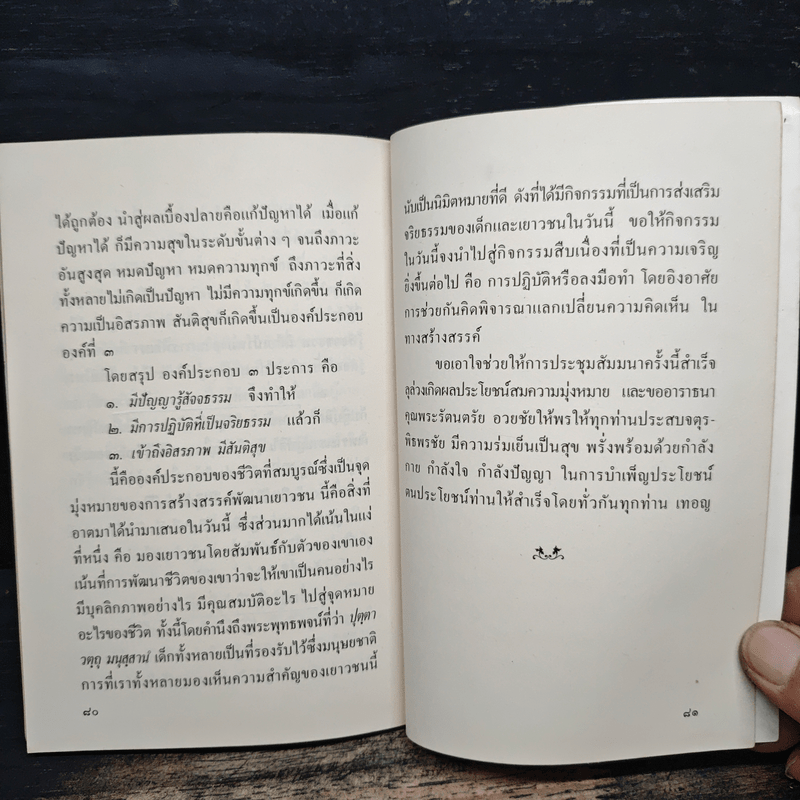 ได้ถูกต้อง นำสู่ผลเบื้องปลายคือแก้ปัญหาได้ เมื่อแก้
ปัญหาได้ ก็มีความสุขในระดับขั้นต่าง ๆ จนถึงภาวะ
อันสูงสุด หมดปัญหา หมดความทุกข์ ถึงภาวะที่สิ่ง
ทั้งหลายไม่เกิดเป็นปัญหา ไม่มีความทุกข์เกิดขึ้น ก็เกิด
ความเป็นอิสรภาพ สันติสุขก็เกิดขึ้นเป็นองค์ประกอบ
องค์ที่ ๓
โดยสรุป องค์ประกอบ ๓ ประการ คือ
๑. มีปัญญารู้สัจจธรรม จึงทำให้
๒. มีการปฏิบัติที่เป็นจริยธรรม แล้วก็
๓. เข้าถึงอิสรภาพ มีสันติสุข
นี้คือองค์ประกอบของชีวิตที่สมบูรณ์ซึ่งเป็นจุด
มุ่งหมายของการสร้างสรรค์พัฒนาเยาวชน นี้คือสิ่งที่
อาตมาได้นำมาเสนอในวันนี้ ซึ่งส่วนมากได้เน้นในแง่
ที่หนึ่ง คือ มองเยาวชนโดยสัมพันธ์กับตัวของเขาเอง
เน้นที่การพัฒนาชีวิตของเขาว่าจะให้เขาเป็นคนอย่างไร
มีบุคลิกภาพอย่างไร มีคุณสมบัติอะไร ไปสู่จุดหมาย
อะไรของชีวิต ทั้งนี้โดยคำนึงถึงพระพุทธพจน์ที่ว่า ปุตฺตา
วตฺถุ มนุสฺสานํ เด็กทั้งหลายเป็นที่รองรับไว้ซึ่งมนุษยชาติ
การที่เราทั้งหลายมองเห็นความสำคัญของเยาวชนนี้
๘๐
นับเป็นนิมิตหมายที่ดี ดังที่ได้มีกิจกรรมที่เป็นการส่งเสริม
จริยธรรมของเด็กและเยาวชนในวันนี้ ขอให้กิจกรรม
ในวันนี้จงนำไปสู่กิจกรรมสืบเนื่องที่เป็นความเจริญ
ยิ่งขึ้นต่อไป คือ การปฏิบัติหรือลงมือทำ โดยอิงอาศัย
การช่วยกันคิดพิจารณาแลกเปลี่ยนความคิดเห็น ใน
ทางสร้างสรรค์
ขอเอาใจช่วยให้การประชุมสัมมนาครั้งนี้สำเร็จ
ลุล่วงเกิดผลประโยชน์สมความมุ่งหมาย และขออาราธนา
คุณพระรัตนตรัย อวยชัยให้พรให้ทุกท่านประสบจตุร-
พิธพรชัย มีความร่มเย็นเป็นสุข พรั่งพร้อมด้วยกำลัง
กาย กำลังใจ กำลังปัญญา ในการบำเพ็ญประโยชน์
ตนประโยชน์ท่านให้สำเร็จโดยทั่วกันทุกท่าน เทอญ
๘๑